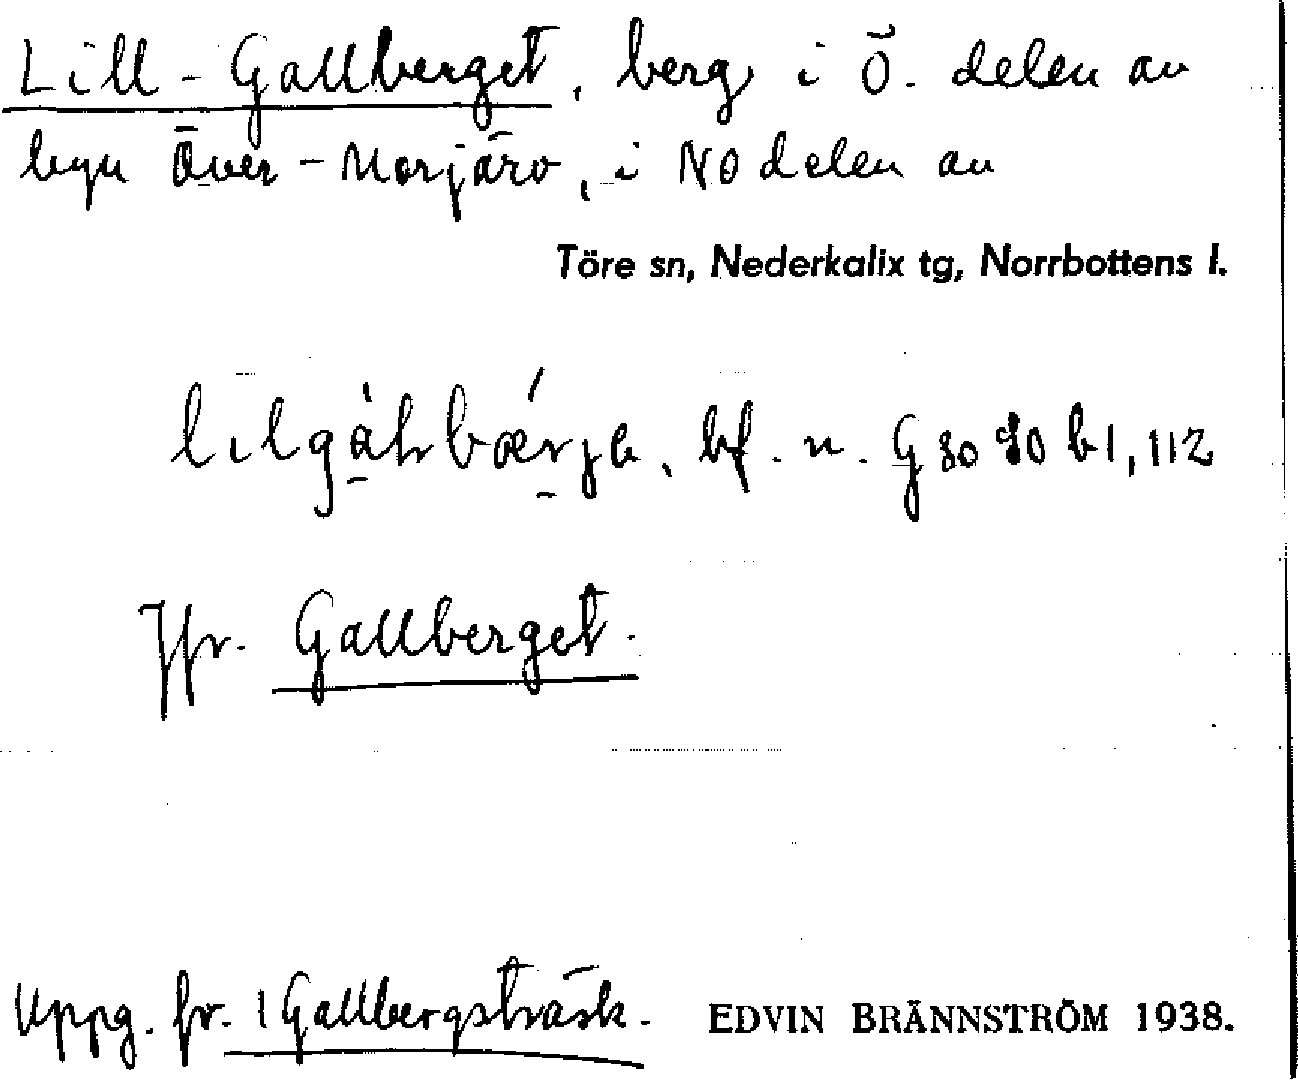 Lill-Gallberget, berg i Ö. delen av
byn Över-Morjärv, i NO delen av
Töre sn, Nederkalix tg, Norrbottens l.
bf. n. G 80
b1, 112
Jfr. Gallberget.
Uppg. fr. 1 Gallbergsträsk. EDVIN BRÄNNSTRÖM 1938.